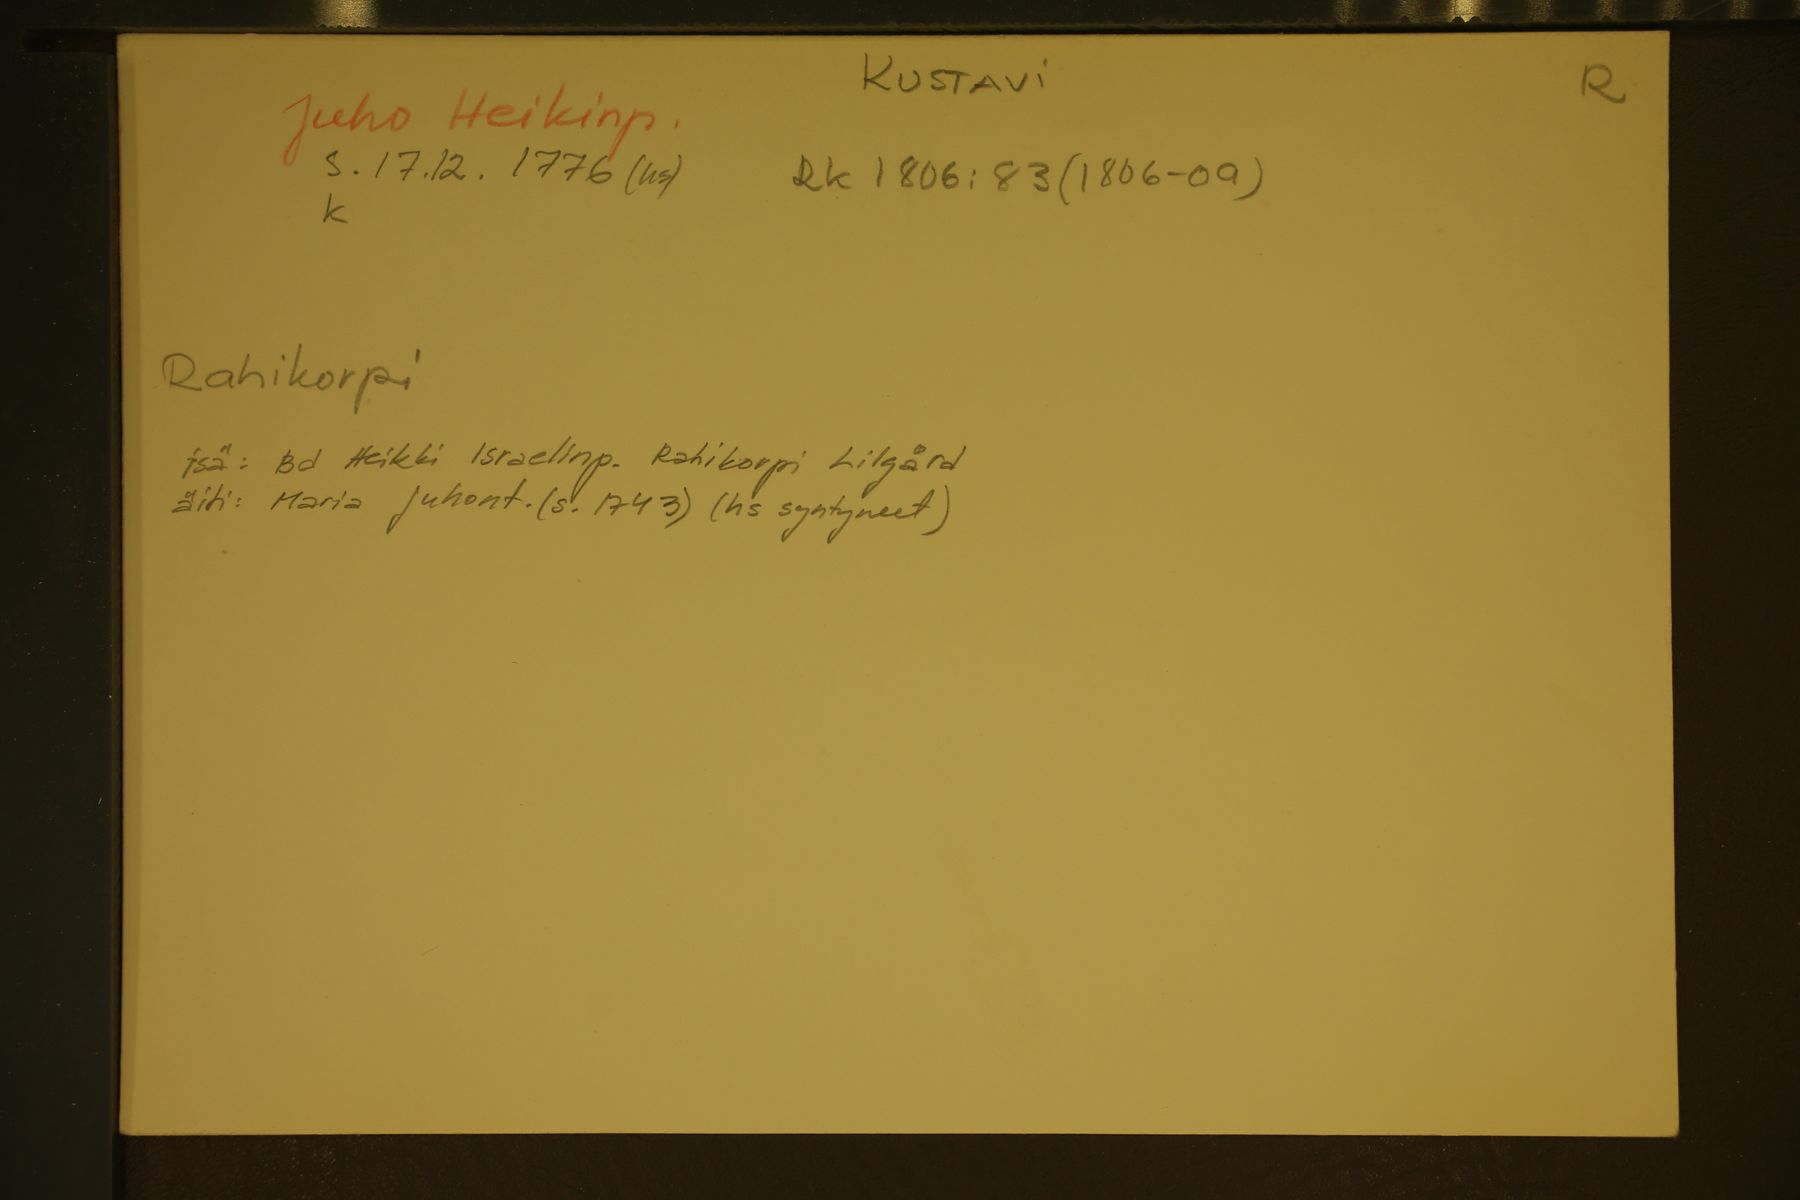 KUSTAVI
R
Juho Heikinp.
s. 17.12. 1776 (hs)
Rk 1806: 83 (1806-09)
k
Rahikorpi
isä: Bd Heikki Israelinp. Rahikorpi Lilgård
äiti: Maria Juhont. (s. 1743) (hs syntyneet)